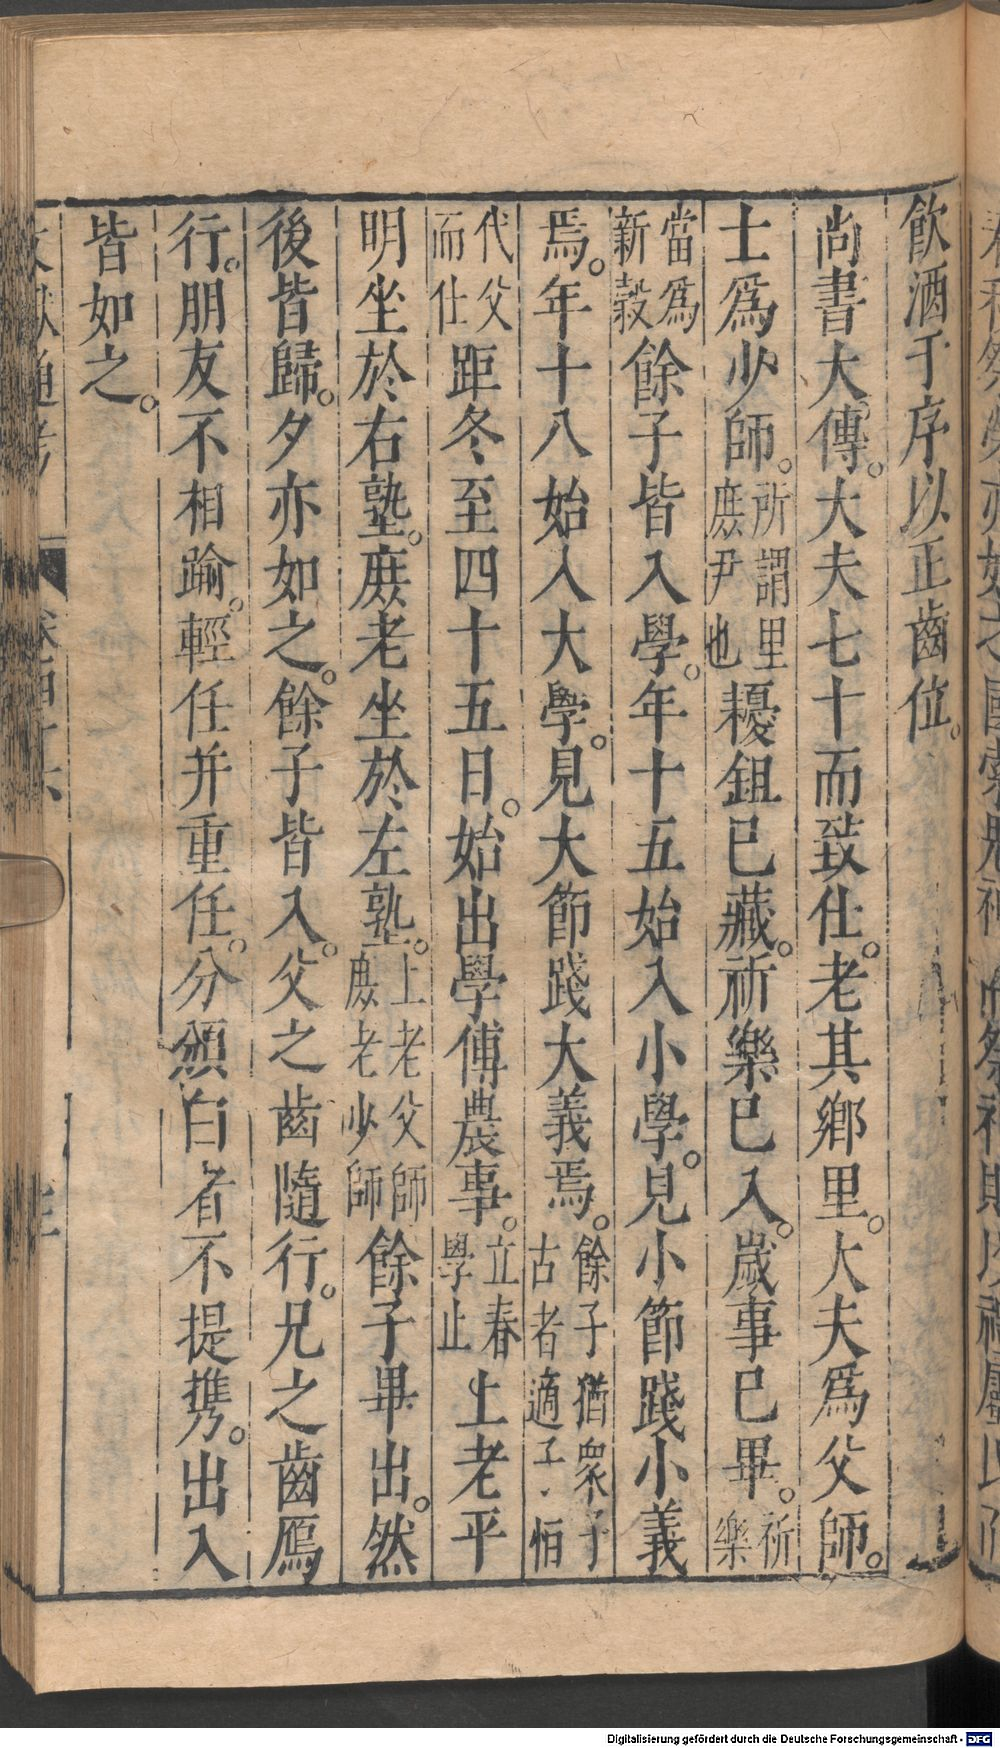 飲酒于序以正齒位。
尚書大傳。大夫七十而致仕。老其鄉里。大夫爲父師。
士爲少師。所謂里庶尹也耰鉏已藏。祈樂已入。歲事已畢。祈樂
當爲新穀餘子皆入學。年十五始入小學。見小節踐小義
焉。年十八始入大學。見大節踐大義焉。餘子猶衆子古者適子恒
代父而仕距冬至四十五日。始出學傅農事。立春學止上老平
明坐於右塾。庶老坐於左塾。上老父師庶老少師餘子畢出。然
後皆歸。夕亦如之。餘子皆入。父之齒隨行。兄之齒鴈
行。朋友不相踰。輕任并重任。分頒白者不提携。出入
皆如之。
Digitalisierung gefördert durch die Deutsche Forschungsgemeinschaft - DFG